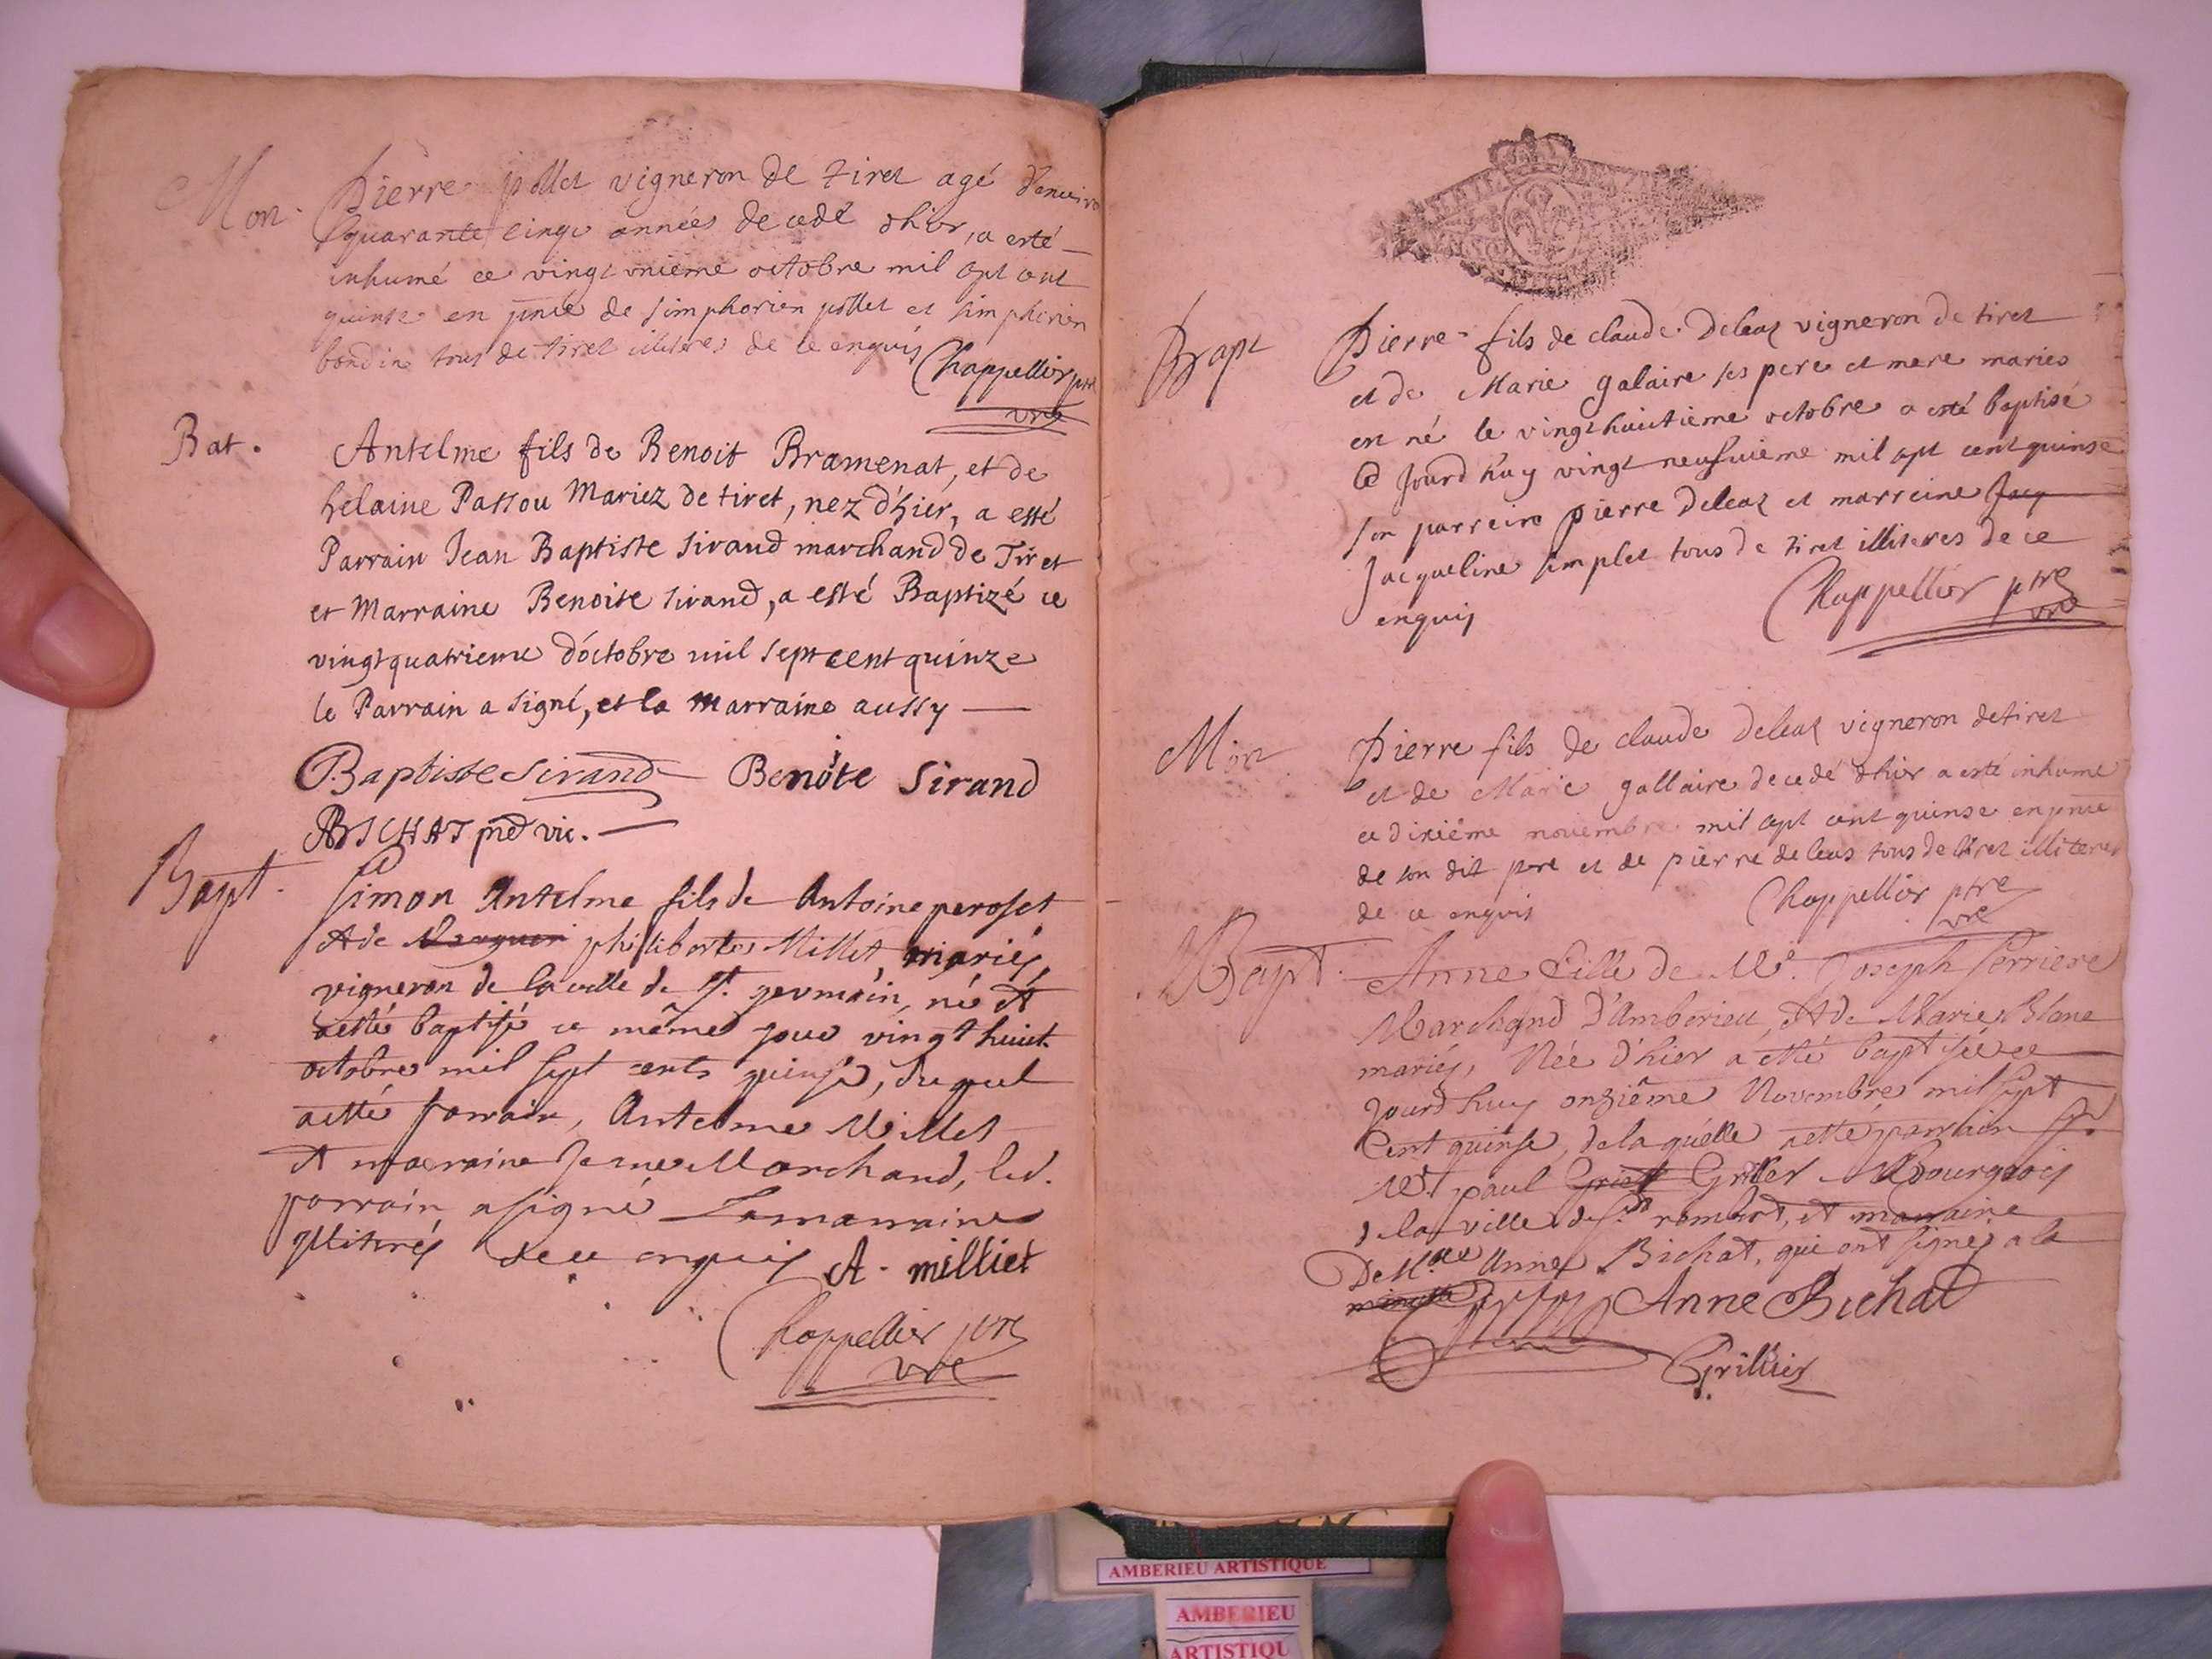 Mor.
Pierre pollet vigneron de tiret agé d'environ
quarante cinqs années decedé d'hier, a esté
inhumé ce vingt unieme octobre mil sept cent
quinse en pnce de simphorien pollet et simphorien
bondin tous de tiret illiteres de ce enquis Chappellier ptre
vre
Bat.
Antelme fils de Benoit Bramenat, et de
helaine Passou Mariez de tiret, nez d'hier, a esté
Parrain Jean Baptiste Sirand marchand de Tiret
et Marraine Benoite Sirand, a esté Baptizé ce
vingt quatrieme d'octobre mil sept cent quinze
le Parrain a signé, et la marraine aussy
Baptiste Sirand Benoite Sirand
BICHAT pred vic.
Bapt.
Simon Antelme fils de Antoine peroset
et de philiberte Millet mariés,
vigneron de la ville de St. germain, né et
aesté baptisé ce même jour vingt huit
octobre mil sept cents quinse, duquel
aetté parrain, Antelme Millet
et marraine Jeanne Marchand, led.
parrain asigné La marraine
Illiterés de ce enquis A. milliet
Chappellier ptre
vre
Bapt
Pierre fils de claude deleaz vigneron de tiret
et de Marie galaire ses pere et mere mariés
est né le vingt huitieme octobre a esté baptisé
ce jourd'huy vingt neufvieme mil sept cent quinse
son parrein pierre deleaz et marreine Jacq
Jacqueline simplet tous de tiret illiteres de ce
enquis Chappellier ptre
vre
Mor
Pierre fils de claude deleaz vigneron de tiret
et de Marie gallaire decedé d'hier a esté inhumé
ce dixiéme novembre mil sept cent quinse en pnce
de son dit pere et de pierre deleas tous de tiret illiteres
de ce enquis Chappellier ptre
vre
Bapt.
Anne fille de Me. Joseph ferriere
Marchand d'Amberieu, et de Marie Blanc
mariés, Née d'hier a etté baptisée ce
jourd'huy onziême Novembre mil sept
Cent quinse, de la quélle aetté parrain Sr
Me. paul Griet Griller Bourgeois
de la ville de St rambert, et marraine
De Mlle Anne Bichat, qui ont signés a la
minutte Anne Bichat
Grillier
AMBERIEU ARTISTIQUE
AMBERIEU
ARTISTIQU